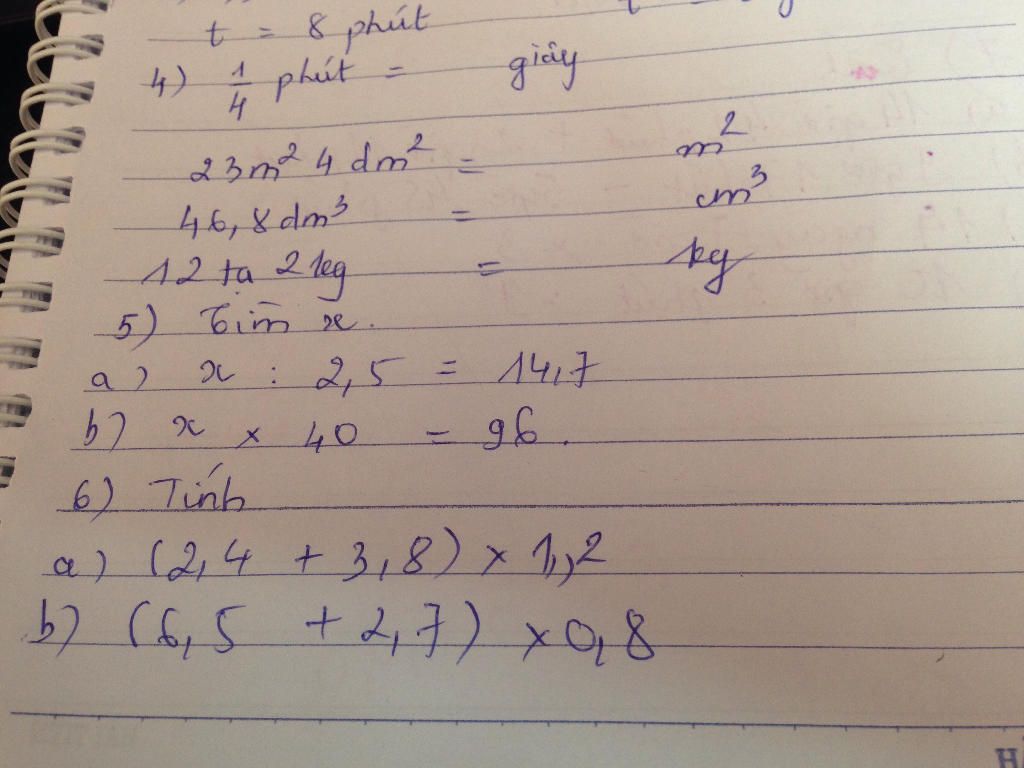 t = 8 phút
4) 1/4 phút = giây
23m² 4 dm² = m²
46,8dm³ = cm³
12 tạ 2 kg = kg
5) Tìm x.
a) x : 2,5 = 14,7
b) x × 40 = 96.
6) Tính
a) (2,4 + 3,8) × 1,,2
b) (6,5 + 2,7) × 0,8